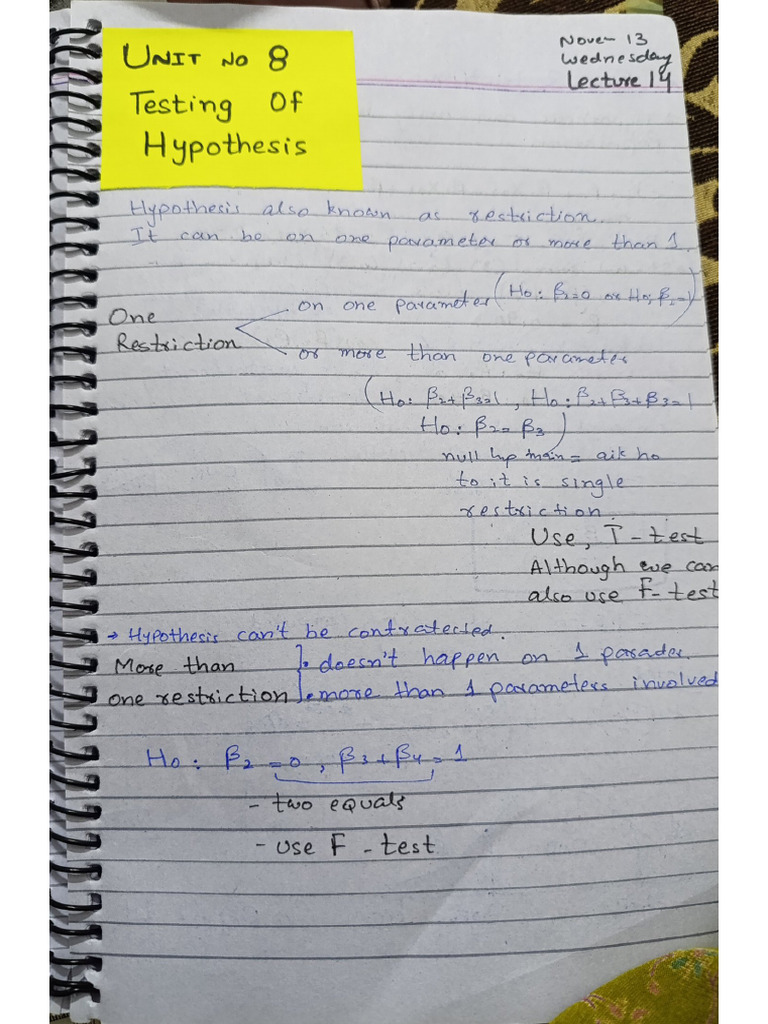 UNIT NO 8
Testing Of
Hypothesis
Nove- 13
Wednesday
Lecture 14
Hypothesis also known as restriction.
It can be on one parameter or more than 1.
One
Restriction
on one parameter (Ho: β2=0 or Ho: β2=1)
or more than one parameter
(Ho: β2+β3=1, Ho: β2+β3+β3=1
Ho: β2=β3)
null hyp main = aik ho
to it is single
restriction.
Use, T-test
Although we can
also use F-test
→ Hypothesis can't be contratected.
More than
one restriction
• doesn't happen on 1 parader.
• more than 1 parameters involved
Ho: β2=0, β3+β4=1
- two equals
- use F-test